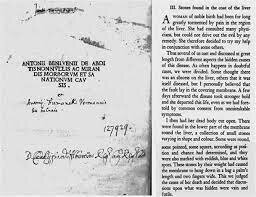 ANTONII BENIVENII DE ABDI
TIS NONNVLLIS AC MIRAN
DIS MORBORVM ET SA
NATIONVM CAV
SIS .
et
127929
III. Stones found in the coat of the liver
A WOMAN of noble birth had been for long
greatly tormented by pain in the region
of the liver. She had consulted many physi-
cians, but could not drive out the evil by any
remedy. She therefore decided to try my help
in conjunction with some others.
Thus several of us met and discussed at great
length from different aspects the hidden causes
of this disease. As often happens in doubtful
cases, we were divided. Some thought there
was an abscess on the liver, others that the liver
itself was diseased, but I personally believed the
fault lay in the covering membrane. A few
days afterwards the disease took stronger hold
and she departed this life, even as we had fore-
told by common consent from unmistakable
symptoms.
I then had her dead body cut open. There
were found in the lower part of the membrane
round the liver, a collection of small stones
varying in shape and colour. Some were round,
some pointed, some square, according as posi-
tion and chance had determined, and they
were also marked with reddish, blue and white
spots. These stones by their weight had caused
the membrane to hang down in a bag a palm's
length and two fingers wide. This we judged
the cause of her death and decided that discus-
sion upon what was hidden were vain and
futile.